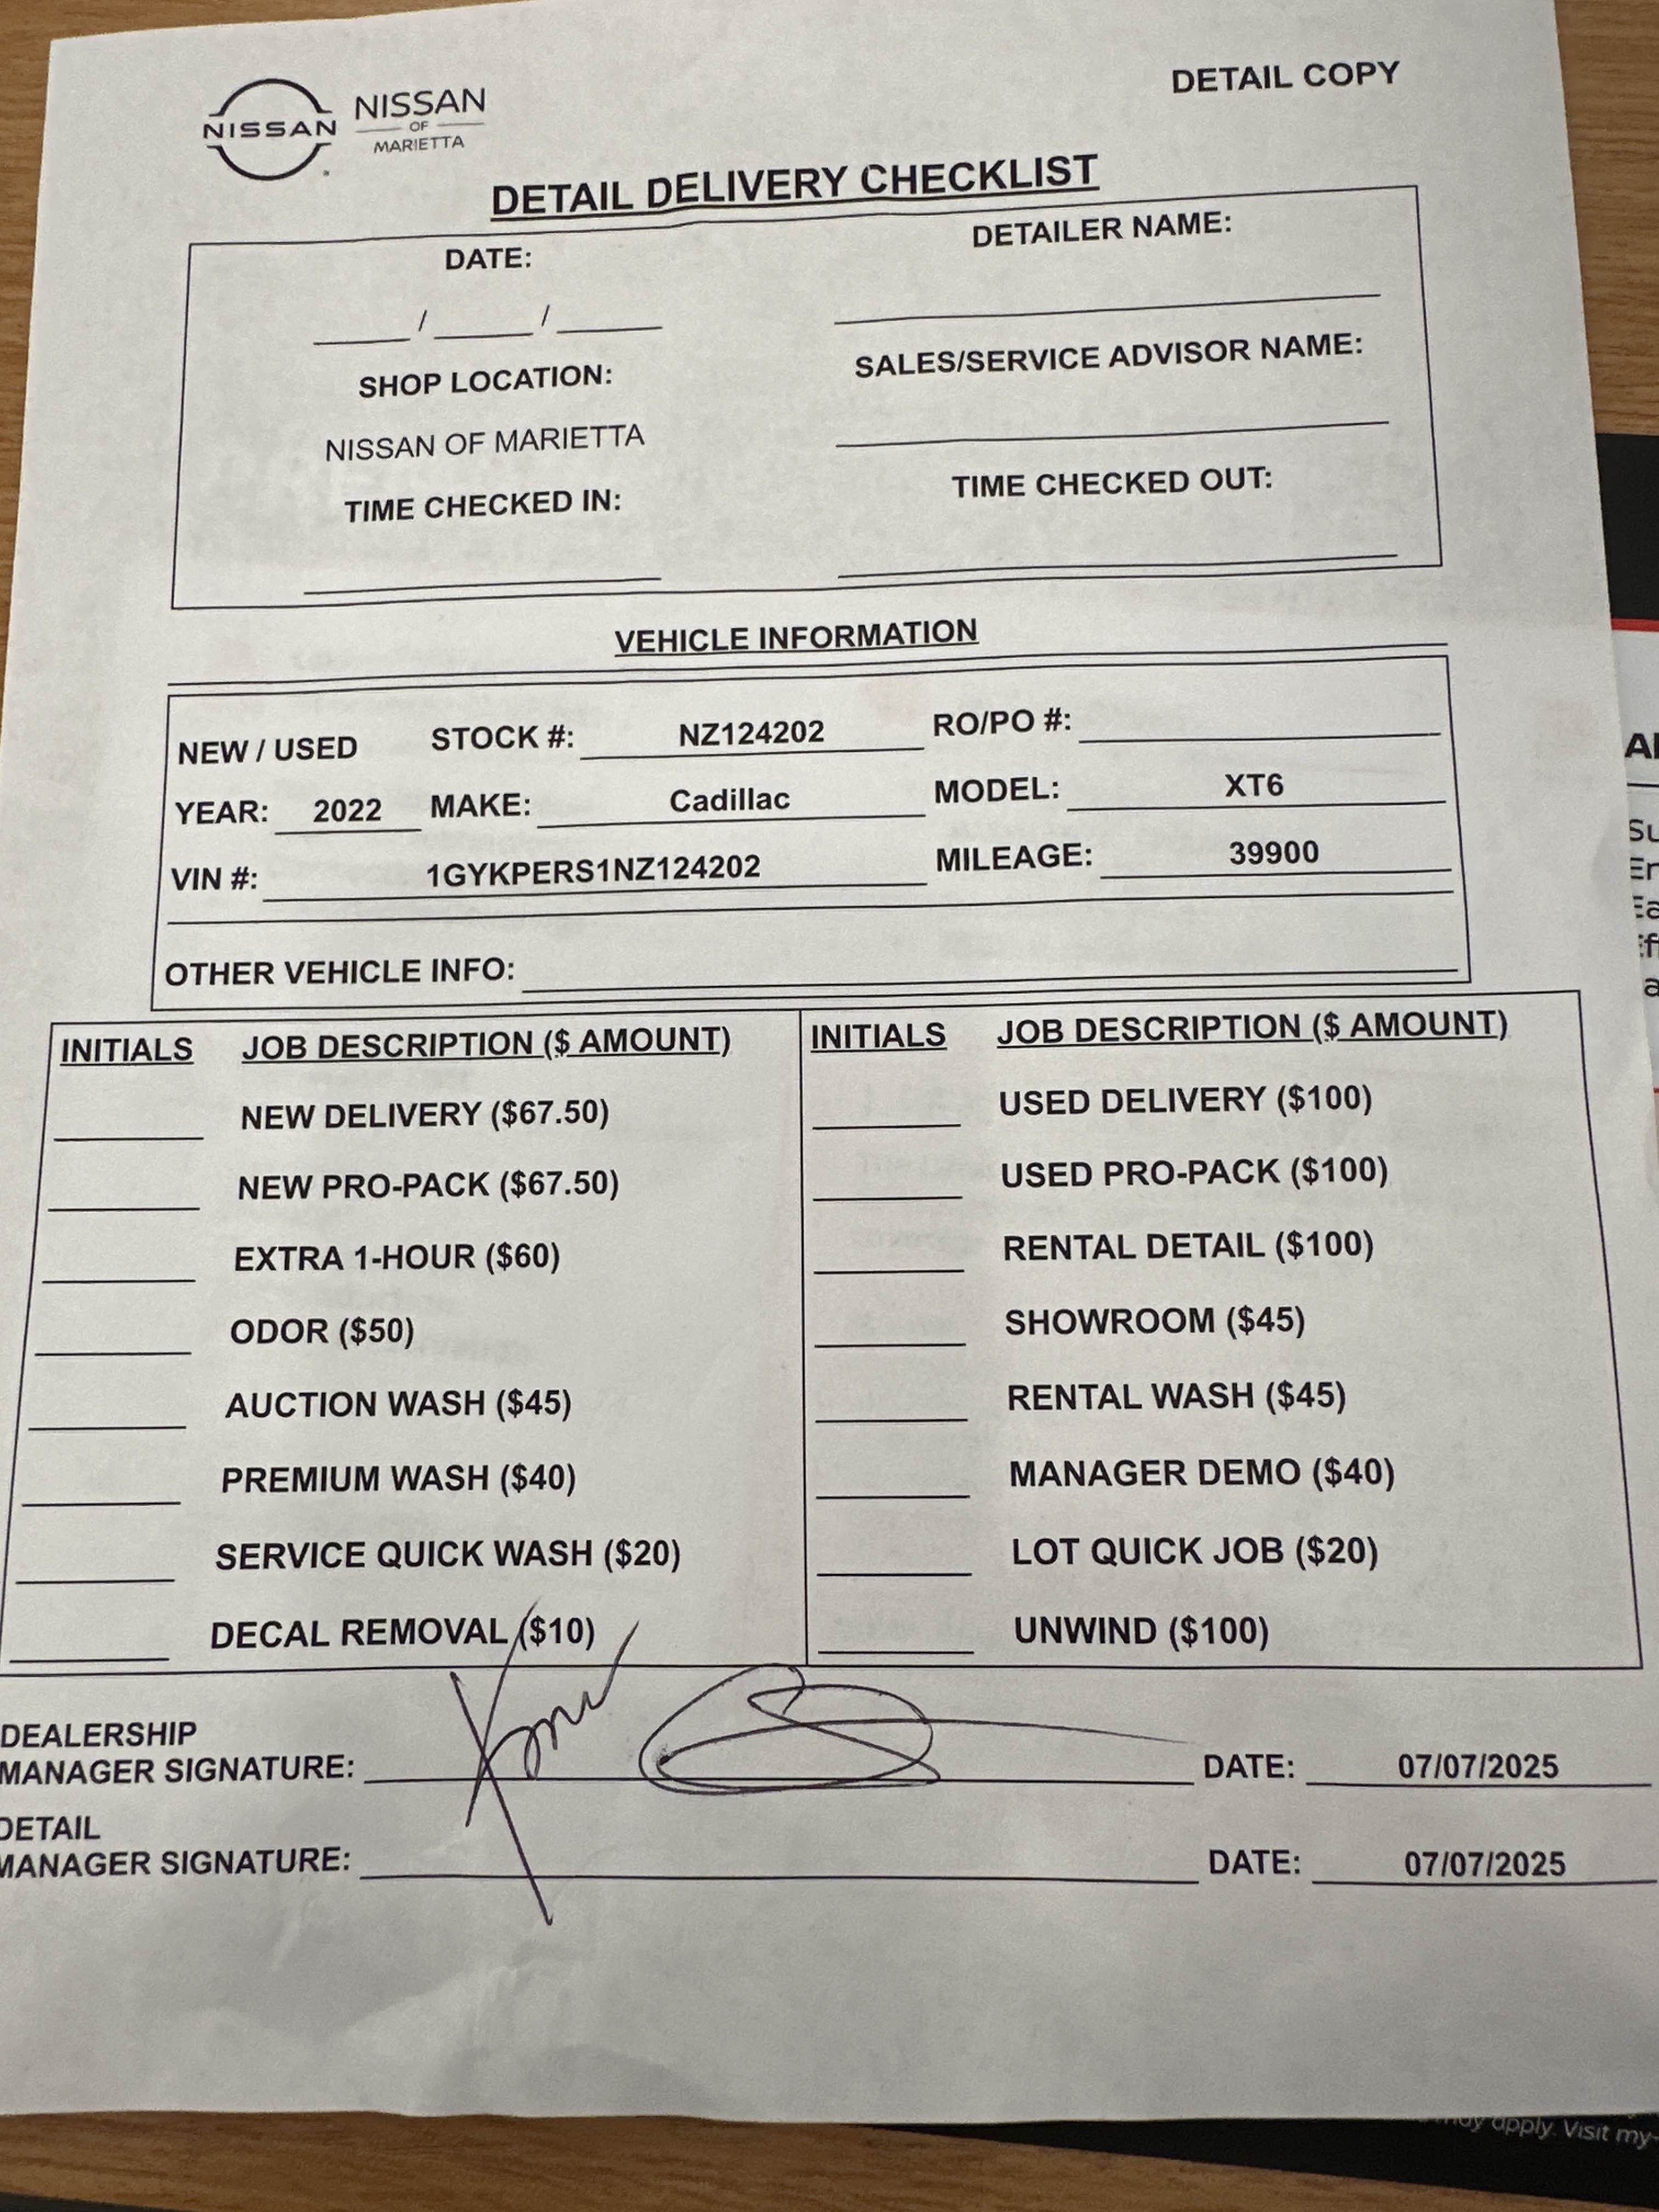 DETAIL COPY
NISSAN
NISSAN
OF
MARIETTA
DETAIL DELIVERY CHECKLIST
DATE:
DETAILER NAME:
____/____/____
SHOP LOCATION:
SALES/SERVICE ADVISOR NAME:
NISSAN OF MARIETTA
TIME CHECKED IN:
TIME CHECKED OUT:
VEHICLE INFORMATION
NEW / USED STOCK #: NZ124202 RO/PO #:
YEAR: 2022 MAKE: Cadillac MODEL: XT6
VIN #: 1GYKPERS1NZ124202 MILEAGE: 39900
OTHER VEHICLE INFO:
INITIALS JOB DESCRIPTION ($ AMOUNT) INITIALS JOB DESCRIPTION ($ AMOUNT)
NEW DELIVERY ($67.50) USED DELIVERY ($100)
NEW PRO-PACK ($67.50) USED PRO-PACK ($100)
EXTRA 1-HOUR ($60) RENTAL DETAIL ($100)
ODOR ($50) SHOWROOM ($45)
AUCTION WASH ($45) RENTAL WASH ($45)
PREMIUM WASH ($40) MANAGER DEMO ($40)
SERVICE QUICK WASH ($20) LOT QUICK JOB ($20)
DECAL REMOVAL ($10) UNWIND ($100)
DEALERSHIP
MANAGER SIGNATURE: DATE: 07/07/2025
DETAIL
MANAGER SIGNATURE: DATE: 07/07/2025
may apply. Visit my-